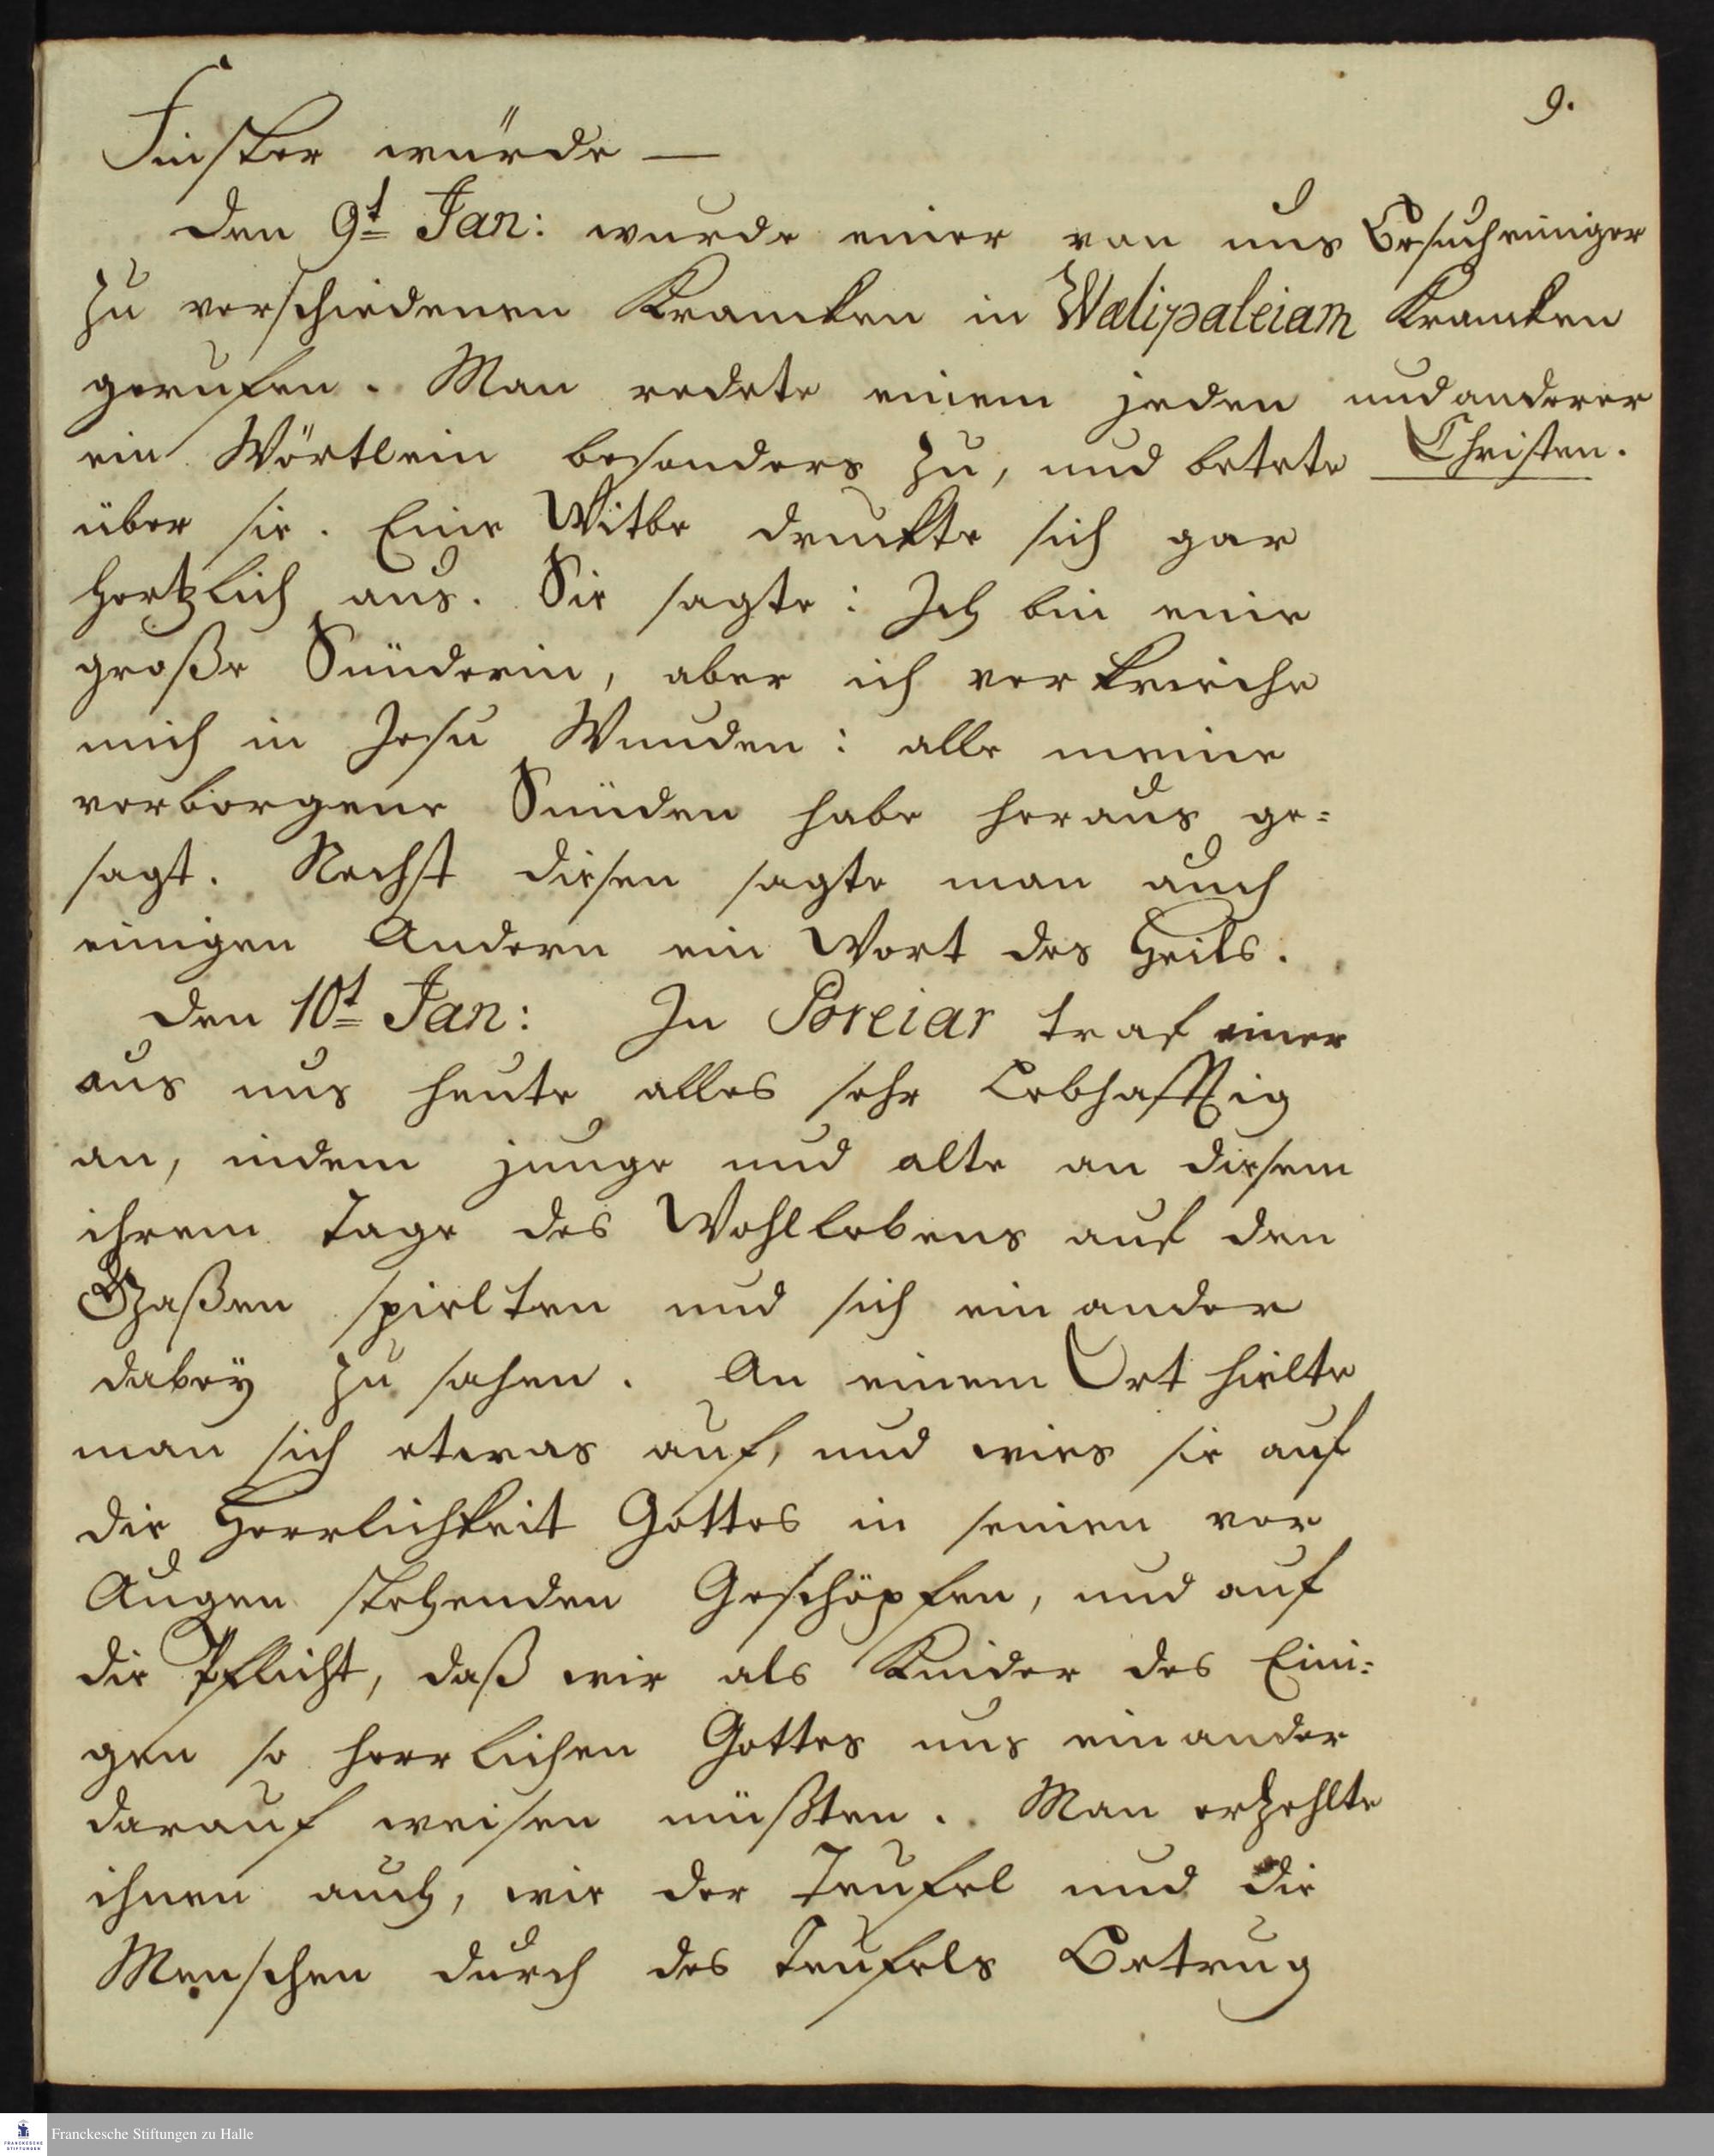 9.
Finster würde —
Den 9t Jan: wurde einer von uns
zu verschiedenen Krancken in Walipaleiam
gerufen. Man redete einem jeden
ein Wörtlein besonders zu, und betete
über sie. Eine Witbe druckte sich gar
hertzlich aus. Sie sagte: Ich bin eine
große Sünderin, aber ich verkrieche
mich in Jesu Wunden: alle meine
verborgene Sünden habe heraus ge=
sagt. Nechst diesen sagte man auch
einigen Andern ein Wort des Heils.
Den 10t Jan: In Poreiar traf einer
aus uns heute alles sehr Lebhafftig
an, indem junge und alte an diesem
ihrem Tage des Wohllebens auf den
Gaßen spielten und sich ein ander
dabey zu sahen. An einem Ort hielte
man sich etwas auf, und wies sie auf
die Herrlichkeit Gottes in seinen vor
Augen stehenden Geschöpfen, und auf
die Pflicht, daß wir als Kinder des Eini=
gen so herrlichen Gottes uns einander
darauf weisen müßten. Man erzehlte
ihnen auch, wie der Teufel und die
Menschen durch des Teufels Betrug
Besuch einiger
Krancken
und anderer
Christen.
Franckesche Stiftungen zu Halle
FRANCKESCHE
STIFTUNGEN